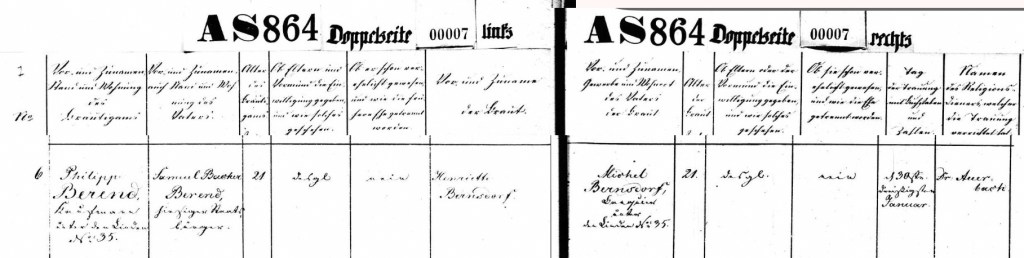 AS 864 Doppelseite 00007 links
Vor- und Zunamen, Stand und Wohnung des Bräutigams
Vor- und Zunamen, auch Stand und Wohnung des Vaters
Alter des Bräutigams
Ob Eltern und Vormund die Einwilligung gegeben und wie solches geschehen.
Ob er schon verehelicht gewesen, und wie die Ehe getrennt worden
Vor- und Zuname der Braut.
No
6
Philipp
Berend,
Kaufmann
unter den Linden
No. 35.
Samuel Bacher
Berend,
hiesiger Staats
bürger.
21
desgl
nein
Henriette
Bernsdorf.
AS 864 Doppelseite 00007 rechts
Vor- und Zunamen, Gewerbe und Wohnort des Vaters der Braut
Alter der Braut
Ob Eltern oder der Vormund die Einwilligung gegeben, und wie solches geschehen.
Ob sie schon verehelicht gewesen, und wie die Ehe getrennt worden.
Tag der Trauung mit Buchstaben und Zahlen
Namen des Religionsdieners, welcher die Trauung verrichtet hat
Michel
Bernsdorf,
Banquier
unter
den Linden No. 35.
21.
desgl.
nein
d 30ste
dreißigsten
Januar.
Dr Auer-
bach